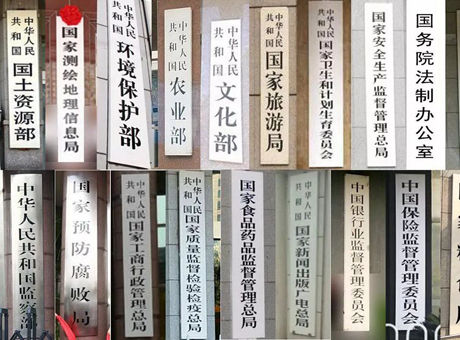 中华人民
共和国
国土资源部
国家测绘地理信息局
中华人民
共和国
环境保护部
中华人民
共和国
农业部
中华人民
共和国
文化部
中华人民
共和国
国家旅游局
中华人民
共和国
国家卫生和计划生育委员会
国家安全生产监督管理总局
国务院法制办公室
中华人民共和国监察部
国家预防腐败局
中华人民
共和国
国家工商行政管理总局
中华人民
共和国
国家质量监督检验检疫总局
国家食品药品监督管理总局
中华人民
共和国
国家新闻出版广电总局
中国银行业监督管理委员会
中国保险监督管理委员会